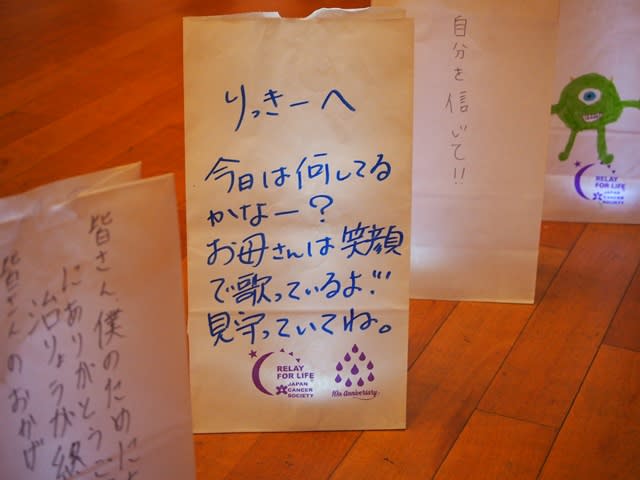 りっきーへ
今日は何してる
かなー?
お母さんは笑顔
で歌っているよ!!
見守っていてね。
RELAY
FOR LIFE
JAPAN
CANCER
SOCIETY
10th Anniversary
自分を信じて!!
RELAY
FOR LIFE
JAPAN
CANCER
SOCIETY
皆さん、僕のために
にありがとうご
治りょうが終
皆さんのおかげ